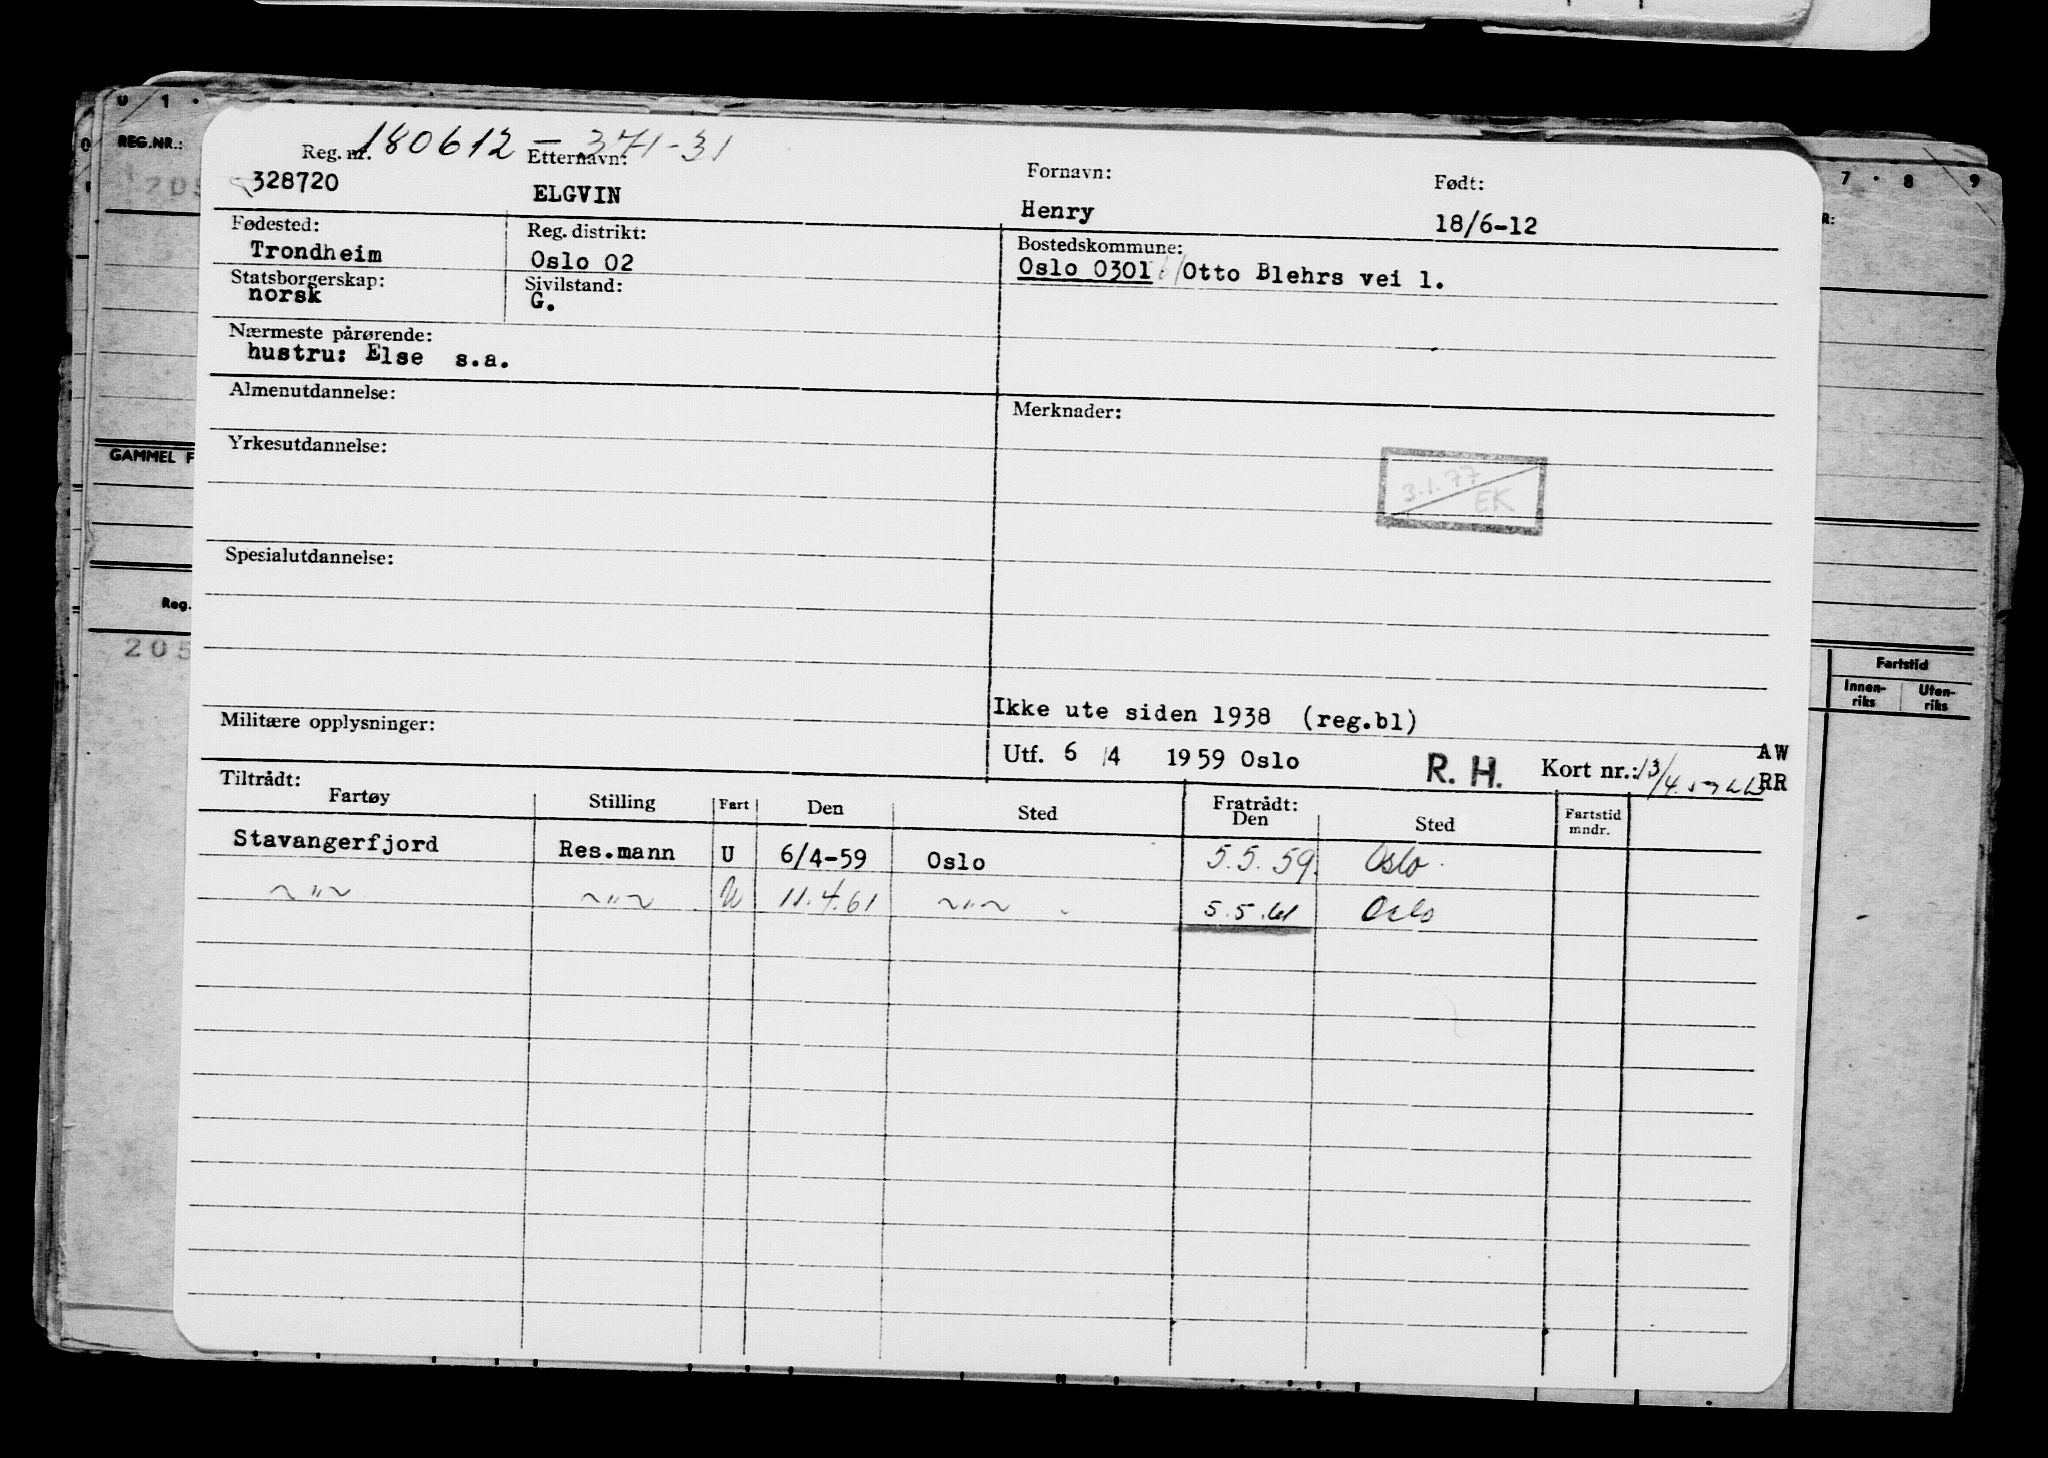 0 1
REG.NR.:
205
GAMMEL F
Reg.
205
7 · 8 9
R:
Fartstid
Innen-
riks
Uten-
riks
180612 - 371-31
Reg. nr.
Etternavn:
Fornavn:
Født:
328720
ELGVIN
Henry
18/6-12
Fødested:
Reg. distrikt:
Bostedskommune:
Trondheim
Oslo 02
Oslo 0301 Otto Blehrs vei 1.
Statsborgerskap:
Sivilstand:
norsk
G.
Nærmeste pårørende:
hustru: Else s.a.
Almenutdannelse:
Merknader:
Yrkesutdannelse:
3.1.77
EK
Spesialutdannelse:
Ikke ute siden 1938 (reg.bl)
Militære opplysninger:
Utf. 6 /4 1959 Oslo
R. H.
Kort nr.: 13/4.59
AW
RR
Tiltrådt:
Fratrådt:
Fartøy Stilling Fart Den Sted Den Sted Fartstid
mndr.
Stavangerfjord Res.mann U 6/4-59 Oslo 5.5.59. Oslo.
~"~ ~"~ U 11.4.61 ~"~ 5.5.61 Oslo